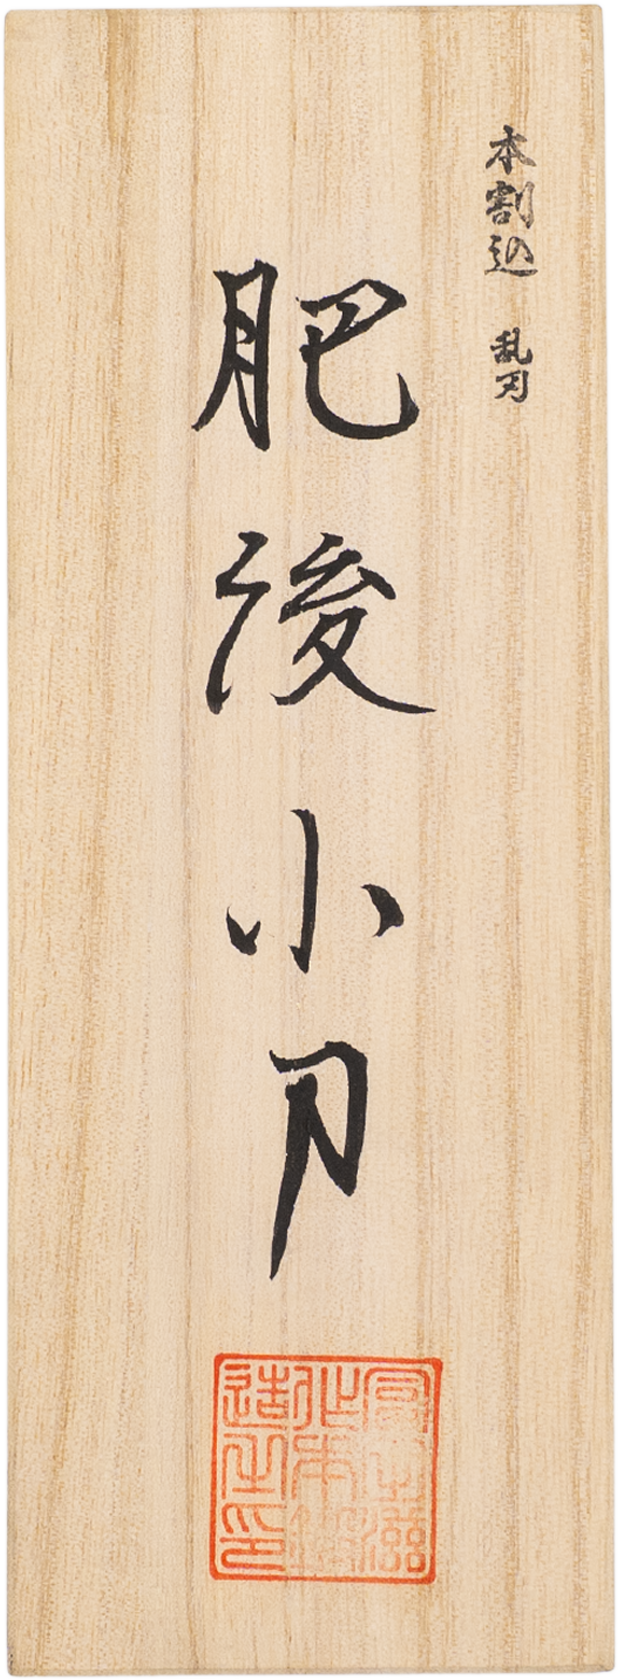 本割込 乱刃
肥後小刀